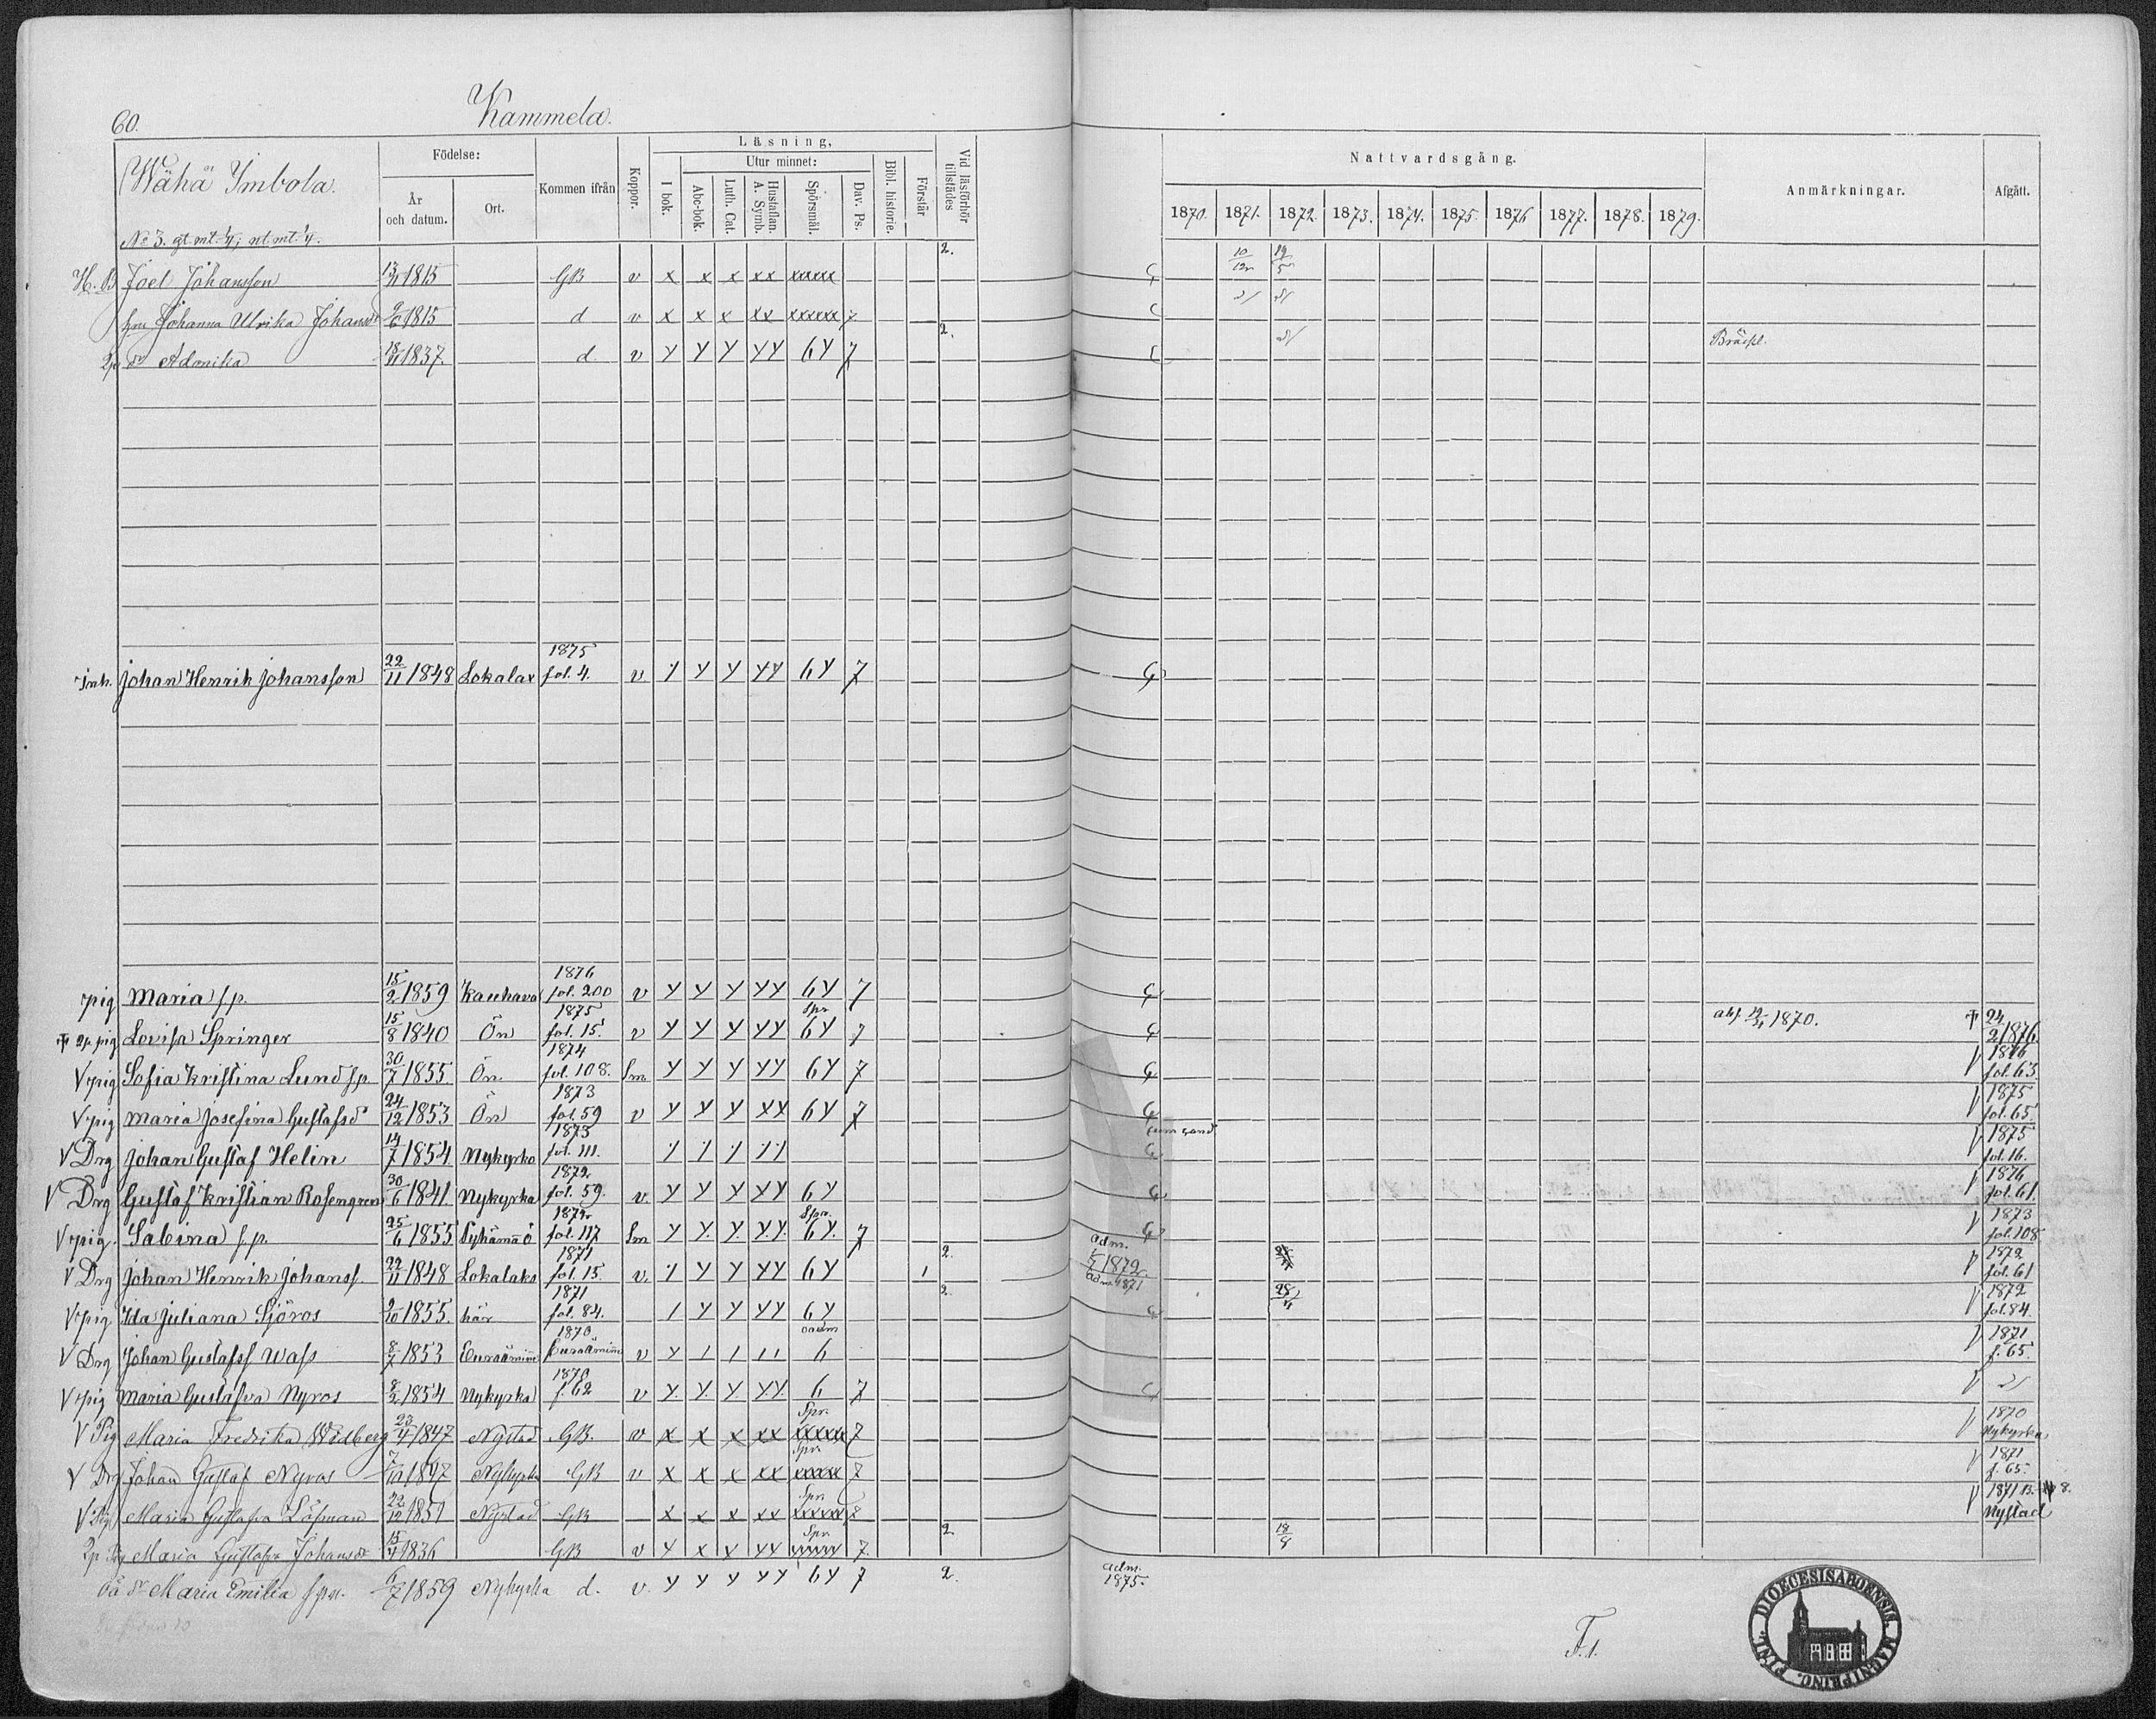 60.
Kammela.
Wähä Ymbola.
No 3. gt. mt. 1/4; nt. mt. 1/4.
Födelse:
År och datum.
Ort.
Kommen ifrån
Koppor.
Läsning,
Utur minnet:
I bok.
Abc-bok.
Luth. Cat.
Hustaflan. A. Symb.
Spörsmål.
Dav. Ps.
Bibl. historie.
Förstår
Vid läsförhör tillstädes
Nattvardsgång.
1870. 1871. 1872. 1873. 1874. 1875. 1876 1877. 1878. 1879.
Anmärkningar.
Afgått.
H. B Joel Johansson 13/11 1815 GB v x x x xx xxxxx 2. 10/12
hu Johanna Ulrika Johansdr 9/6 1815 d v x x x xx xxxxxx 7
dr Adamika 18/11 1837. d v y y y yy 6y 7 2. Bräckl.
Inh. Johan Henrik Johansson 22/11 1848 Lokalax 1875 fol. 4. v y y y yy 6y 7
pig Maria s.p. 15/2 1859 Kauhava 1876 fol. 200 v y y y yy 6y 7
pig Lovisa Springer 15/8 1840 Ön 1875 fol. 15 v y y y yy Spr 6y 7 1870. 24/2 1876
V pig Sofia Kristina Lund s.p. 30/7 1855 Ön. 1874 fol. 108. Sm y y y yy 6y 7 1876 fol. 63
V pig Maria Josefina Gustafsd 24/12 1853 Ön 1873 fol. 59 v y y y yy 6y 7 1875 fol. 65.
V Drg Johan Gustaf Helin 14/7 1854 Nykyrko 1873 fol. 111. 1875 fol. 16.
V Drg Gustaf Kristian Rosengren 30/6 1841. Nykyrka 1872. fol. 59. v. y y y yy 6y 1876 fol. 61.
V pig. Sabina s.p. 25/6 1855 Pyhämaa 1872 fol. 117 Sm y y. y. y.y. Spr. 6y. 7 1873 fol. 108
V Drg Johan Henrik Johanss. 22/11 1848 Lokalaks 1871 fol. 15. v. y y y yy 6y 1 2. adm. 1872. 1872 fol. 61
V pig Ida Juliana Sjöros 2/10 1855. här 1871 fol. 84. 1 y y yy 6y 2. adm. 1871 28/4 1872 fol. 84.
V Drg Johan Gustafsf Wass 8/7 1853 Euraåminne 1870. Euraåminne v y 1 1 11 6 1871 f. 65.
V pig Maria Gustafva Nyros 8/2 1854 Nykyrka 1870 f. 62 v y. y. y. yy. 6 7
V Pig Maria Fredrika Widberg 23/4 1847 Nystad GB. v x x x xx Spr. xxxxx 7 1870 Nykyrka
V Drg Johan Gustaf Nyros 1847 Nykyrka GB v x x x xx Spr. xxxxx 7 1871 f. 65.
V Pig Maria Gustafva Löfman 22/12 1851 Nystad GB x x x xx Spr. xxxxxx 7 1871 B. No 8. Nystad
Maria Gustafva Johansdr 15/4 1836 GB v y x y yy Spr yyyyyy 7 2 18/4
dr Maria Emilia 6/7 1859 Nykyrka d. v. y y y yy 6y 7 2. adm. 1875.
F. 1.
DIOECESIS ABOENSIS. MAGNI PRINC. FINL.